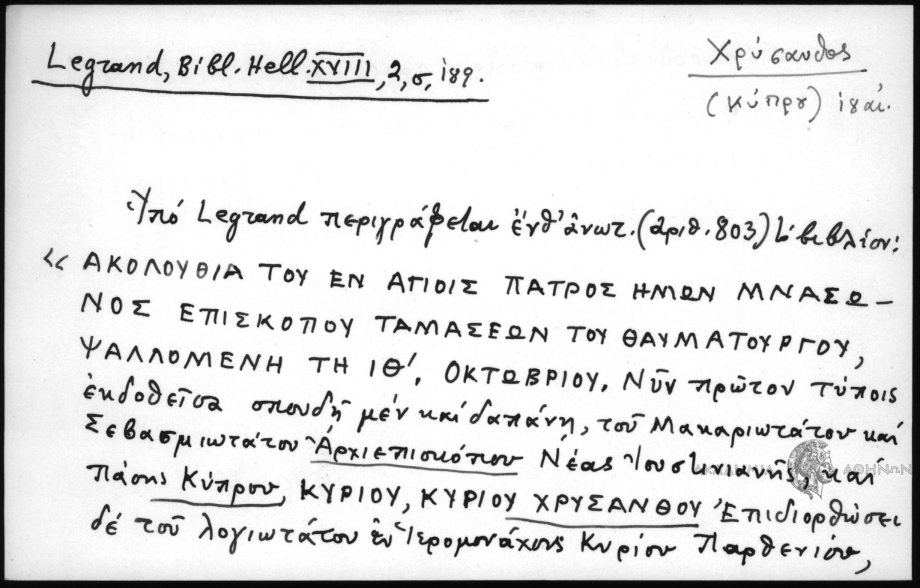 Legrand, Bibl. Hell. XVIII, 2, σ, 189.
Χρύσανθος
(Κύπρου) ι8αί.
Ὑπό Legrand περιγράφεται ἐνθ' ἀνωτ. (ἀριθ. 803) βιβλίον:
« ΑΚΟΛΟΥΘΙΑ ΤΟΥ ΕΝ ΑΓΙΟΙΣ ΠΑΤΡΟΣ ΗΜΩΝ ΜΝΑΣΩ–
ΝΟΣ ΕΠΙΣΚΟΠΟΥ ΤΑΜΑΣΕΩΝ ΤΟΥ ΘΑΥΜΑΤΟΥΡΓΟΥ,
ΨΑΛΛΟΜΕΝΗ ΤΗ ΙΘ', ΟΚΤΩΒΡΙΟΥ. Νῦν πρῶτον τύποις
ἐκδοθεῖσα σπουδῇ μέν καί δαπάνῃ, τοῦ Μακαριωτάτου καί
Σεβασμιωτάτου Ἀρχιεπισκόπου Νέας Ἰουστινιανῆς, καί
Πάσης Κύπρου, ΚΥΡΙΟΥ, ΚΥΡΙΟΥ ΧΡΥΣΑΝΘΟΥ Ἐπιδιορθώσει
δέ τοῦ λογιωτάτου ἐν Ἱερομονάχοις Κυρίου Παρθενίου,
ΑΚΑΔΗΜΙΑ ΑΘΗΝΩΝ